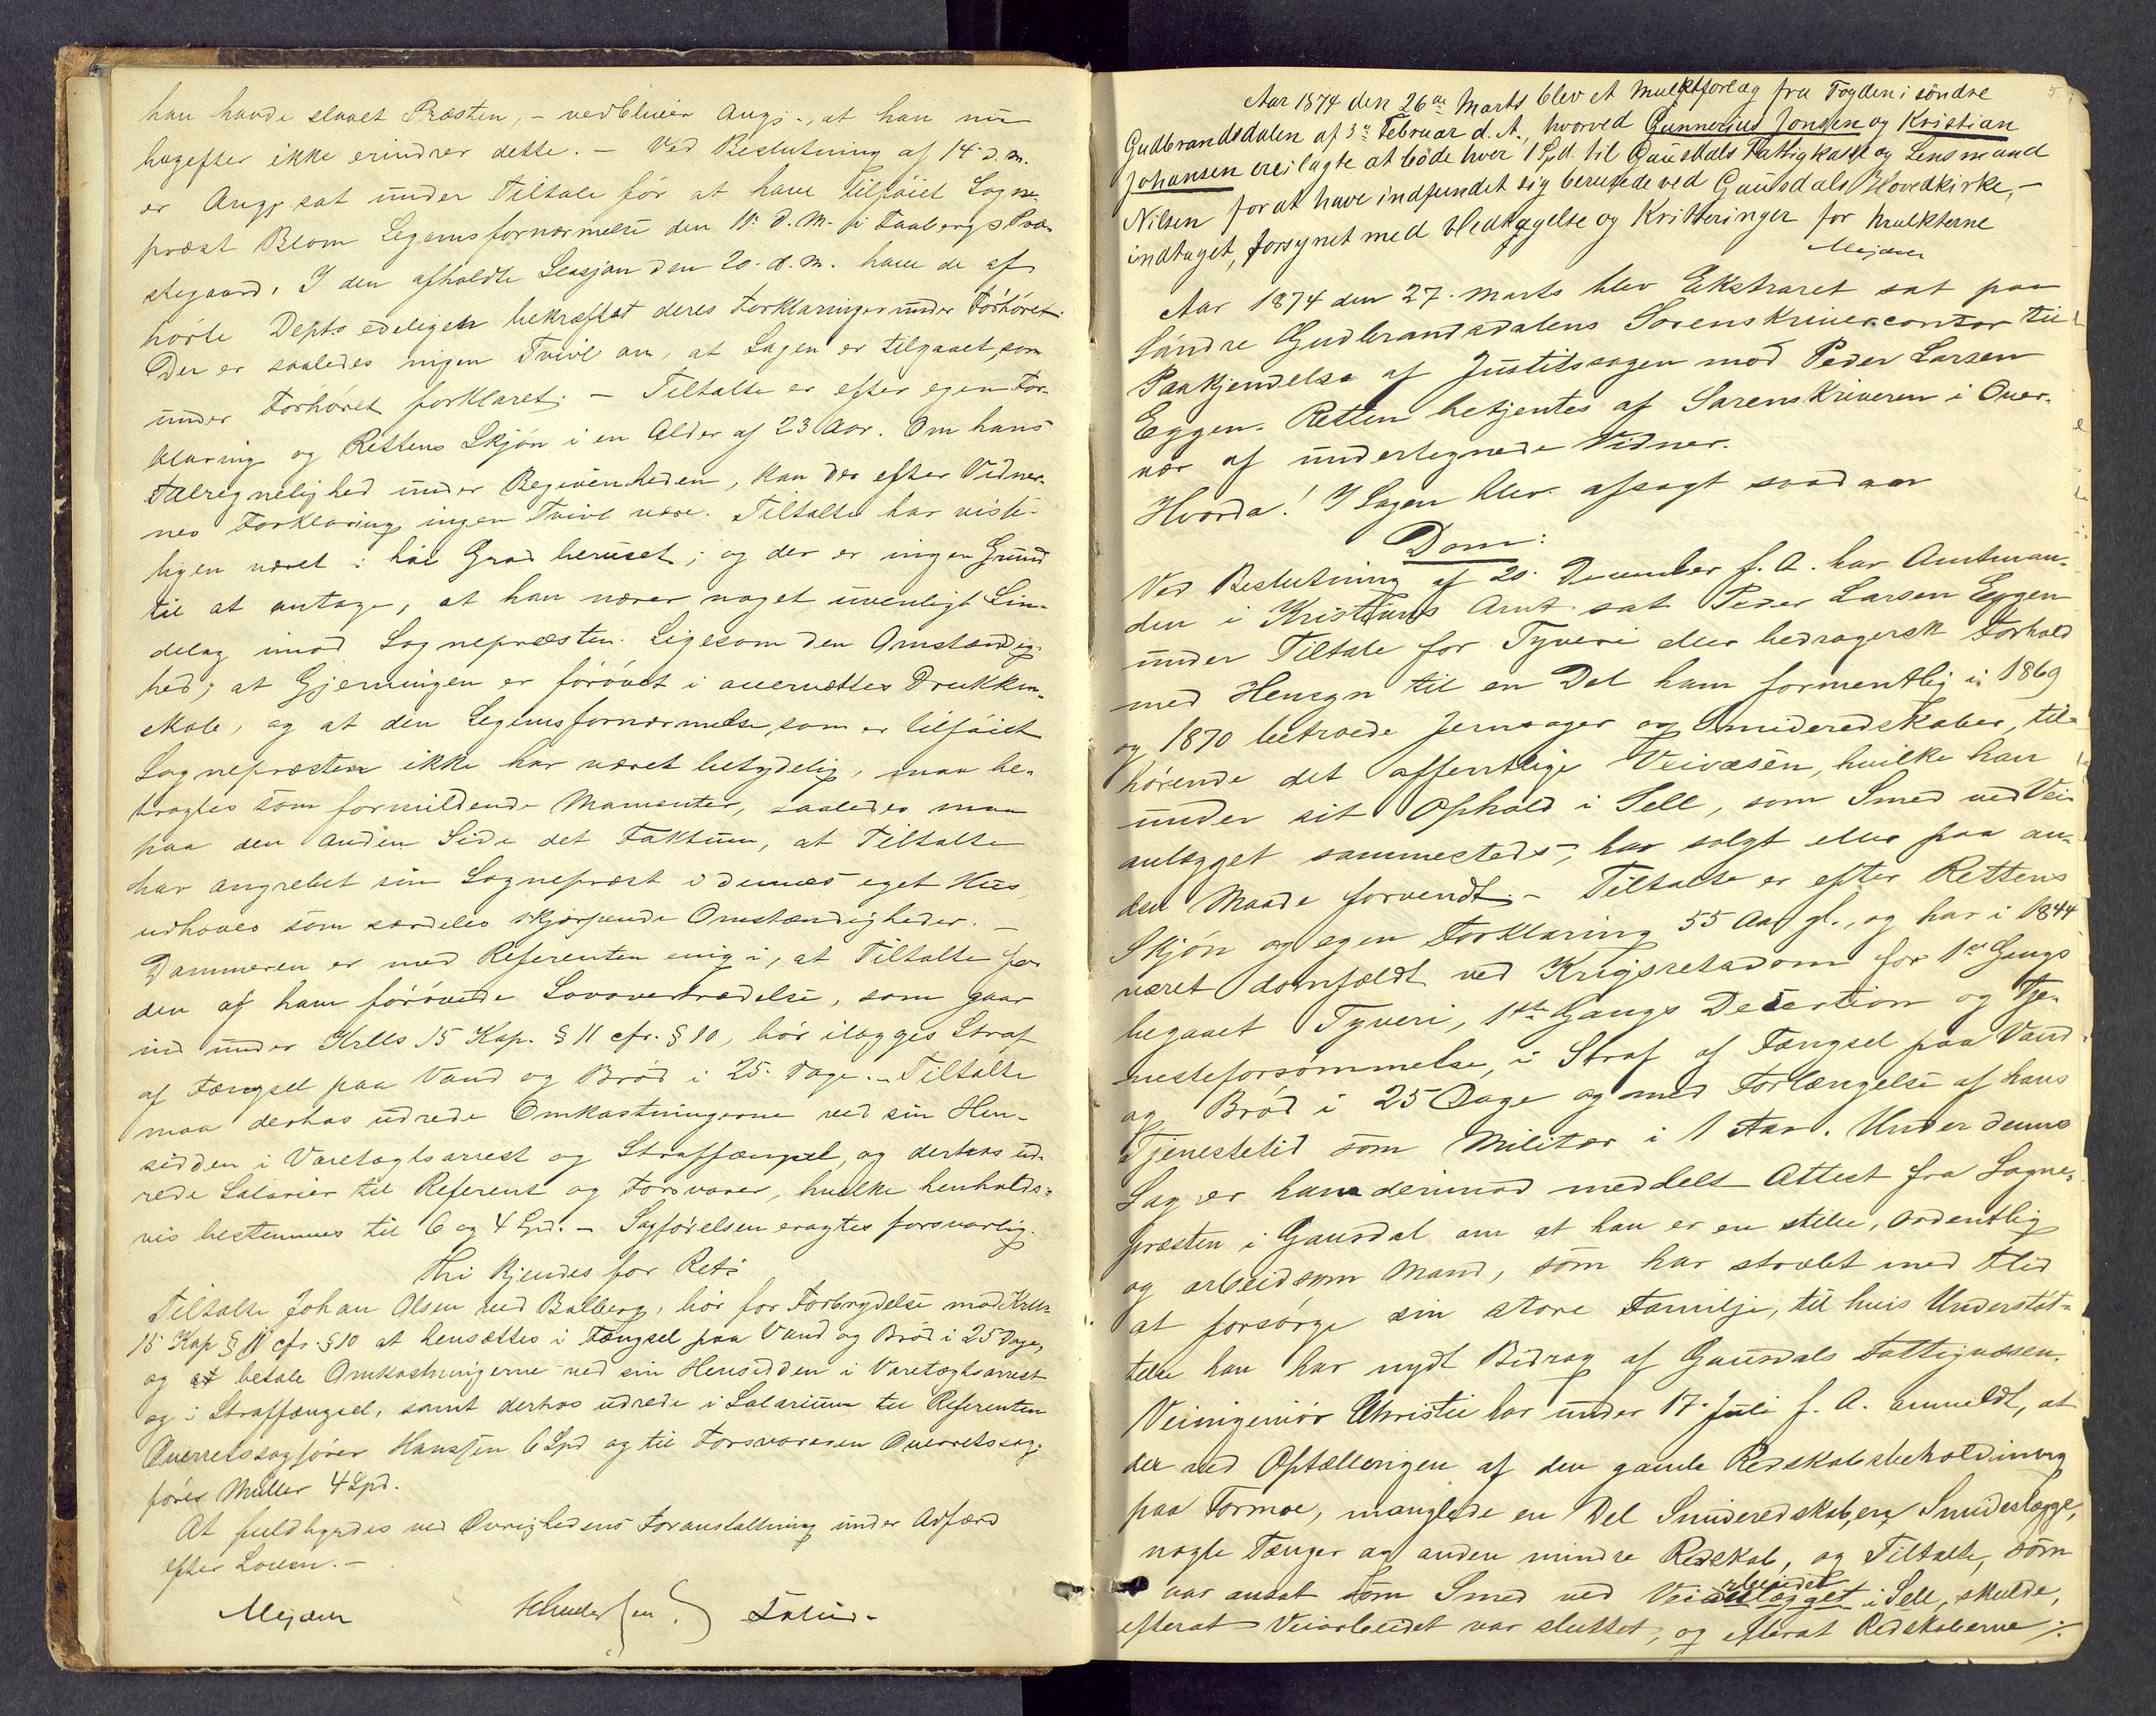 han havde slaaet Præsten, – vedbliver Angj., at han nu
bagefter ikke erindrer dette. – Ved Beslutning af 14 d. M.
er Angj. sat under Tiltale for at have tilføiet Sogne-
præst Blom Legemsfornærmelse den 11 d. M. i Faabergs Præ-
stegaard. I den afholdte Sessjon den 20 d. M. have de af-
hørte Depts edeligen bekræftet deres Forklaringer under Forhøret.
Der er saaledes ingen Tvivl om, at Sagen er tilgaaet, som
under Forhøret forklaret. – Tiltalte er efter egen For-
klaring og Rettens Skjøn i en Alder af 23 Aar. Om hans
Tilregnelighed under Begivenheden, kan der efter Vidner-
nes Forklaring ingen Tvivl være. Tiltalte har viste-
ligen været i høi Grad beruset; og der er ingen Grund
til at antage, at han nærer noget uvenligt Sin-
delag imod Sognepræsten. Ligesom den Omstændig-
hed, at Gjerningen er forøvet i overvættes Drukken-
skab, og at den Legemsfornærmelse, som er tilføiet
Sognepræsten ikke har været betydelig, maa be-
tragtes som formildende Momenter, saaledes maa
paa den anden Side det Faktum, at Tiltalte
har angrebet sin Sognepræst i dennes eget Hus,
udhæves som særdeles skjærpende Omstændigheder. –
Dommeren er med Referenten enig i, at Tiltalte for
den af ham forøvede Lovovertrædelse, som gaar
ind under Krlls 15 Kap. § 11 cfr. § 10, bør ilægges Straf
af Fængsel paa Vand og Brød i 25 Dage. – Tiltalte
maa derhos udrede Omkostningerne ved sin Hen-
sidden i Varetægtsarrest og Straffængsel, og derhos ud-
rede Salarier til Referent og Forsvarer, hvilke henholds-
vis bestemmes til 6 og 4 Spd. – Sagførelsen eragtes forsvarlig.
Thi kjendes for Ret:
Tiltalte Johan Olsen ved Balberg, bør for Forbrydelse mod Krlls
15 Kap § 11 cfr. § 10 at hensættes i Fængsel paa Vand og Brød i 25 Dage,
og at betale Omkostningerne ved sin Hensidden i Varetægtsarrest
og i Straffængsel, samt derhos udrede i Salarium til Referenten
Overretssagfører Hanssen 6 Spd og til Forsvareren Overretssag-
fører Müller 4 Spd.
At fuldbyrdes ved Øvrighedens Foranstaltning under Adfærd
efter Loven. –
Mejdell
5
Aar 1874 den 26de Marts blev et Mulktforlæg fra Fogden i søndre
Gudbrandsdalen af 3de Februar d. A., hvorved Gunnerius Jonsen og Kristian
Johansen ere ilagte at bøde hver 1 Spd. til Gausdals Fattigkasse og Lensmand
Nilsen for at have indfundet sig berusede ved Gausdals Hovedkirke, –
indtaget, forsynet med Vedtagelse og Kvitteringer for Mulkterne
Mejdell
Aar 1874 den 27. Marts blev Ekstraret sat paa
Søndre Gudbrandsdalens Sorenskrivercontor til
Paakjendelse af Justitssagen mod Peder Larsen
Eggen. Retten betjentes af Sorenskriveren i Over-
vær af undertegnede Vidner.
Hvorda! I Sagen blev afsagt saadan
Dom:
Ved Beslutning af 20. December f. A. har Amtman-
den i Kristians Amt sat Peder Larsen Eggen
under Tiltale for Tyveri eller bedragersk Forhold
med Hensyn til en Del ham formentlig i 1869
og 1870 betroede Jernsager og Smideredskaber, til-
hørende det offentlige Veivæsen, hvilke han
under sit Ophold i Sell, som Smed ved Vei-
anlægget sammesteds, har solgt eller paa an-
den Maade forvendt. – Tiltalte er efter Rettens
Skjøn og egen Forklaring 55 Aar gl., og har i 1844
været domfældt ved Krigsretsdom for 1ste Gangs
begaaet Tyveri, 1ste Gangs Desertion og Tje-
nesteforsømmelse, i Straf af Fængsel paa Vand
og Brød i 25 Dage og med Forlængelse af hans
Tjenestetid som Militær i 1 Aar. Under denne
Sag er ham derimod meddelt Attest fra Sogne-
præsten i Gausdal om at han er en stille, ordentlig
og arbeidsom Mand, som har stræbt med Flid
at forsørge sin store Familje, til hvis Understøt-
telse han har nydt Bidrag af Gausdals Fattigvæsen.
Veiingeniør Christie har under 17. Juli f. A. anmeldt, at
der ved Optællingen af den gamle Redskabsbeholdning
paa Formoe, manglede en Del Smideredskaber, Smideslægge,
nogle Tænger og anden mindre Redskab, og Tiltalte, som
var ansat som Smed ved Veiarbeidet i Sell, skulde,
efterat Veiarbeidet var sluttet, og efterat Redskaberne ⁒